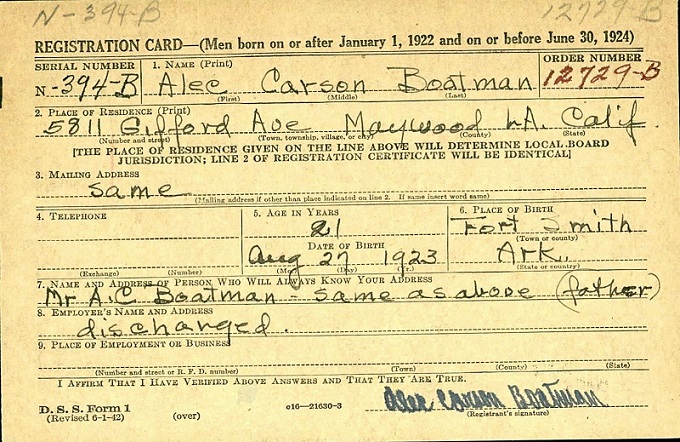 N-394-B 12729-B
REGISTRATION CARD—(Men born on or after January 1, 1922 and on or before June 30, 1924)
SERIAL NUMBER 1. NAME (Print) ORDER NUMBER
N-394-B Alec Carson Boatman 12729-B
(First) (Middle) (Last)
2. PLACE OF RESIDENCE (Print)
5811 Gifford Ave Maywood LA. Calif.
(Number and street) (Town, township, village, or city) (County) (State)
[THE PLACE OF RESIDENCE GIVEN ON THE LINE ABOVE WILL DETERMINE LOCAL BOARD
JURISDICTION; LINE 2 OF REGISTRATION CERTIFICATE WILL BE IDENTICAL]
3. MAILING ADDRESS
same
(Mailing address if other than place indicated on line 2. If same insert word same)
4. TELEPHONE 5. AGE IN YEARS 6. PLACE OF BIRTH
21 Fort Smith
DATE OF BIRTH (Town or county)
Aug 27 1923 Ark.
(Exchange) (Number) (Mo.) (Day) (Yr.) (State or country)
7. NAME AND ADDRESS OF PERSON WHO WILL ALWAYS KNOW YOUR ADDRESS
Mr A.C Boatman - same as above (father)
8. EMPLOYER'S NAME AND ADDRESS
discharged.
9. PLACE OF EMPLOYMENT OR BUSINESS
(Number and street or R. F. D. number) (Town) (County) (State)
I AFFIRM THAT I HAVE VERIFIED ABOVE ANSWERS AND THAT THEY ARE TRUE.
D. S. S. Form 1 c16—21630-3 Alec Carson Boatman
(Revised 6-1-42) (over) (Registrant's signature)